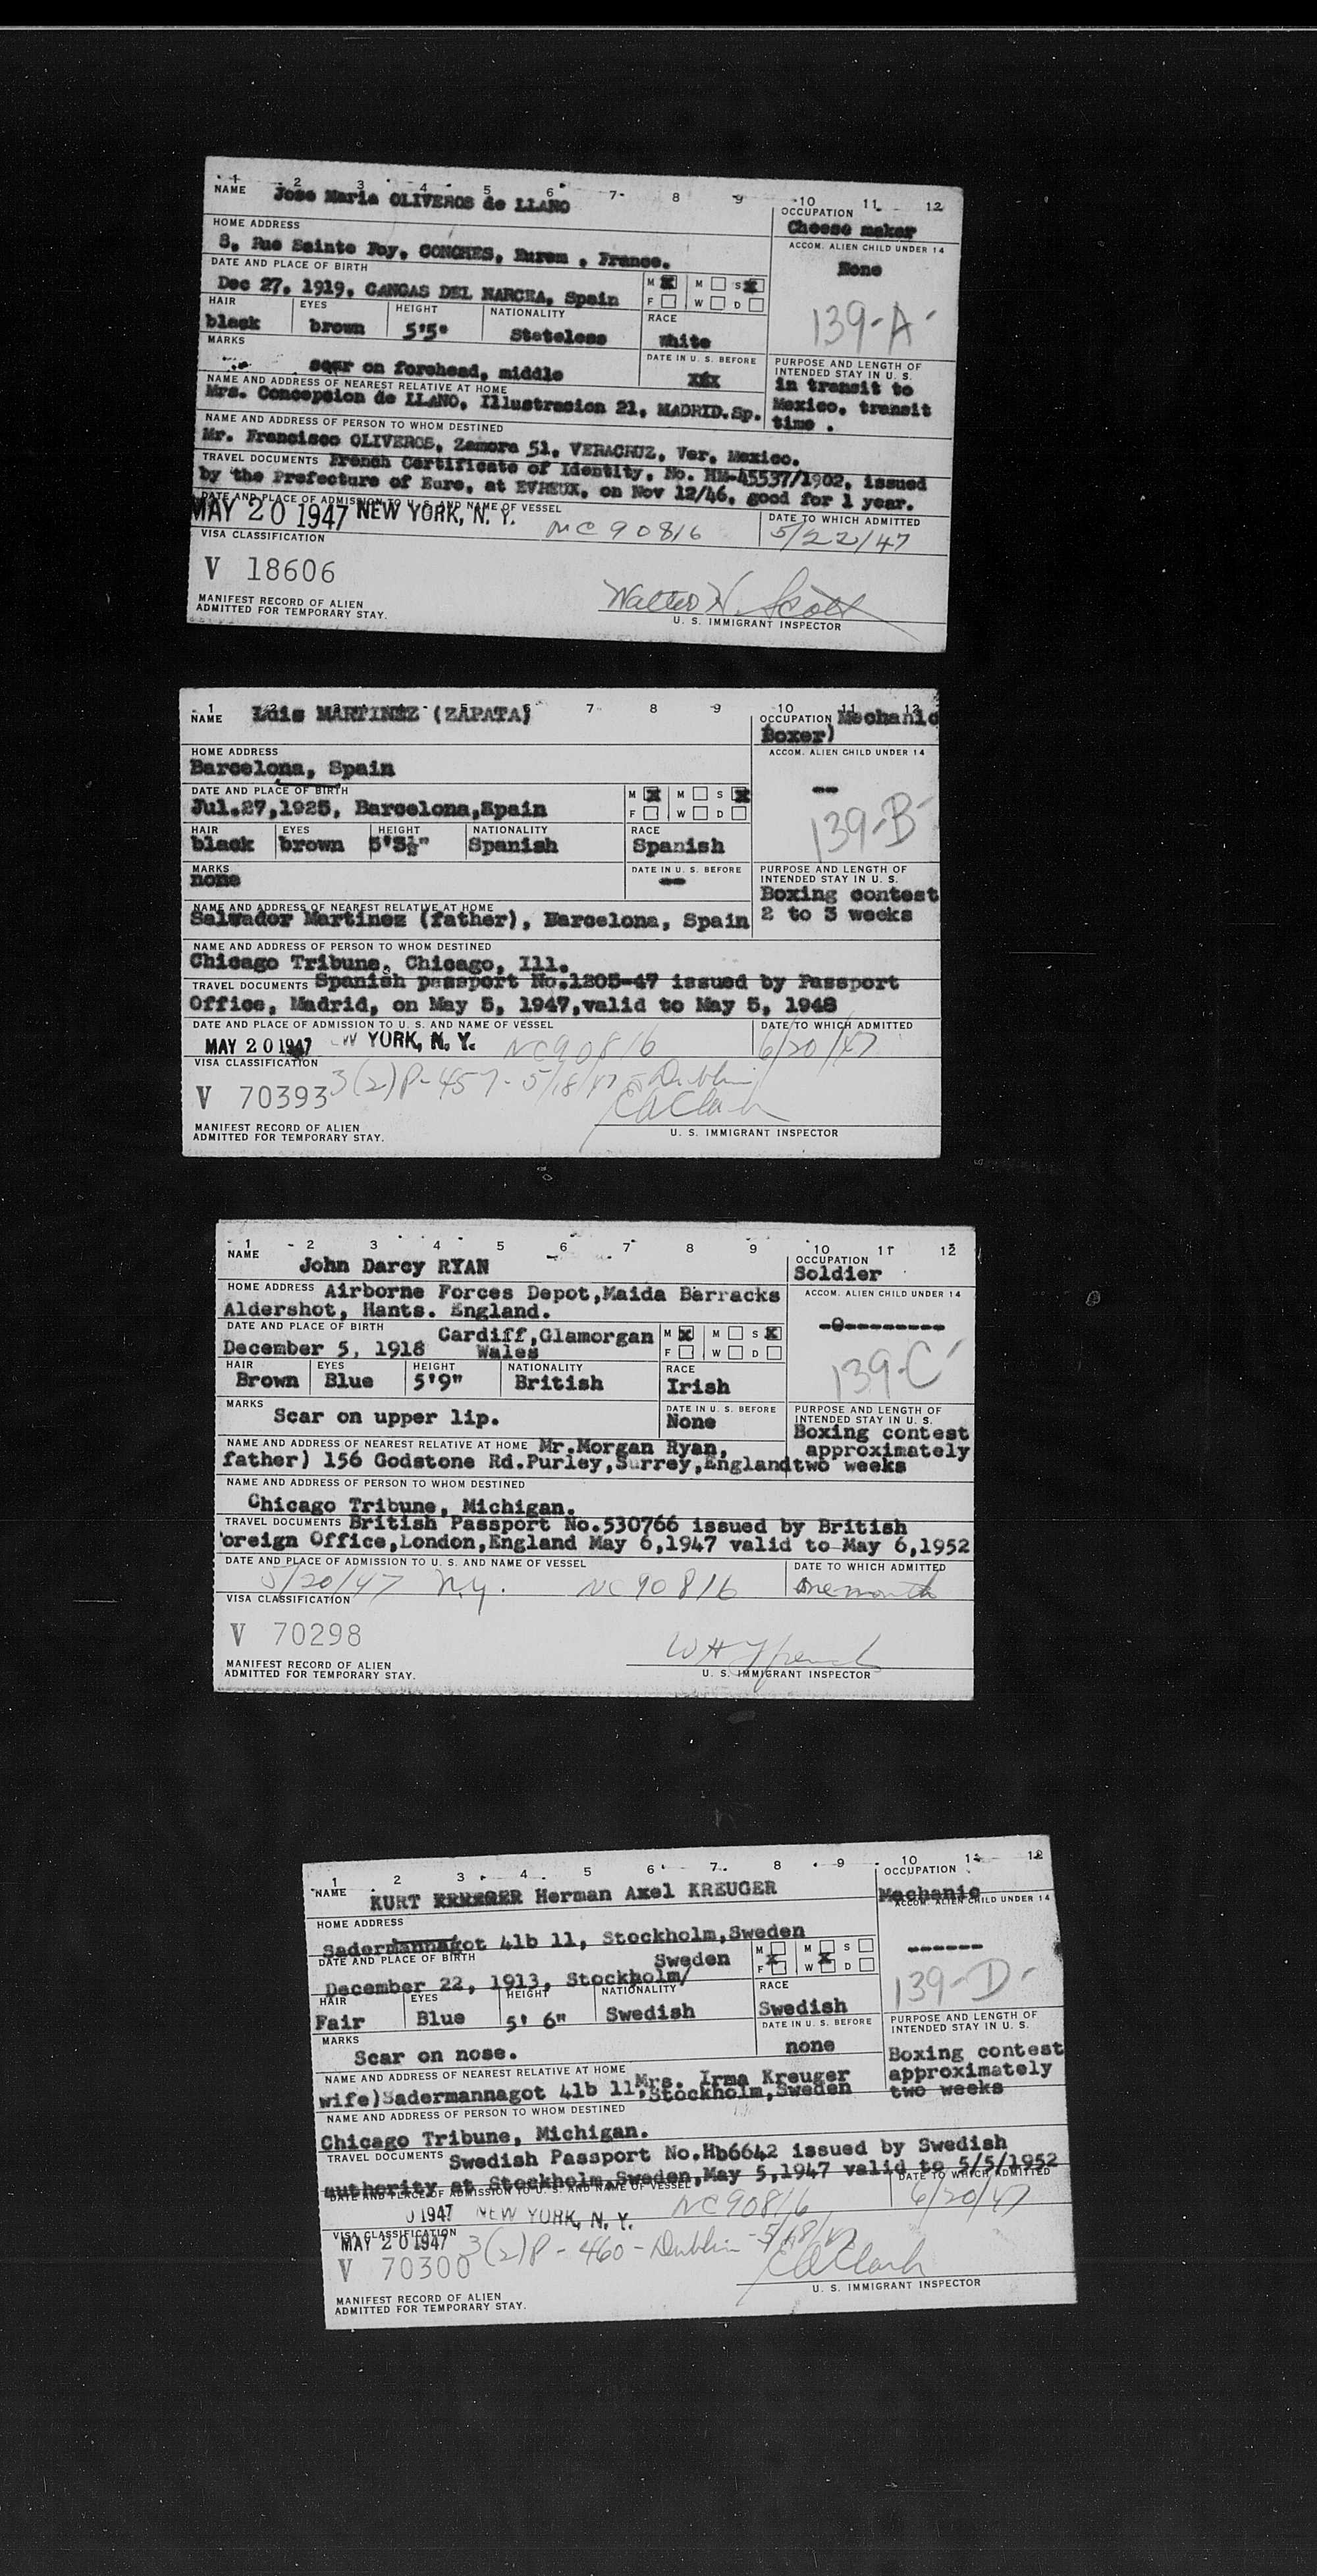 1 2 3 4 5 6 7 8 9 10 11 12
NAME Jose Maria OLIVEROS de LLANO
OCCUPATION
Cheese maker
HOME ADDRESS
8, Rue Sainte Foy, CONCHES, Eurem , France.
ACCOM. ALIEN CHILD UNDER 14
None
DATE AND PLACE OF BIRTH
Dec 27, 1919, CANGAS DEL NARCEA, Spain
M X M S X
F W D
139-A-
HAIR EYES HEIGHT NATIONALITY RACE
black brown 5'5" Stateless white
MARKS
scar on forehead, middle
DATE IN U. S. BEFORE
XXX
PURPOSE AND LENGTH OF
INTENDED STAY IN U. S.
in transit to
Mexico, transit
time .
NAME AND ADDRESS OF NEAREST RELATIVE AT HOME
Mrs. Concepsion de LLANO, Illustracion 21, MADRID.Sp.
NAME AND ADDRESS OF PERSON TO WHOM DESTINED
Mr. Francisco OLIVEROS, Zamora 51, VERACRUZ, Ver. Mexico.
TRAVEL DOCUMENTS French Certificate of Identity, No. HM-45537/1902, issued
by the Prefecture of Eure, at EVREUX, on Nov 12/46, good for 1 year.
DATE AND PLACE OF ADMISSION TO U. S. AND NAME OF VESSEL
MAY 20 1947 NEW YORK, N. Y. NC 90816
DATE TO WHICH ADMITTED
5/22/47
VISA CLASSIFICATION
V 18606
Walter H. Scott
MANIFEST RECORD OF ALIEN
ADMITTED FOR TEMPORARY STAY.
U. S. IMMIGRANT INSPECTOR
1 2 3 4 5 6 7 8 9 10 11 12
NAME Luis MARTINEZ (ZAPATA)
OCCUPATION Mechanic
Boxer)
HOME ADDRESS
Barcelona, Spain
ACCOM. ALIEN CHILD UNDER 14
--
DATE AND PLACE OF BIRTH
Jul.27,1925, Barcelona,Spain
M X M S X
F W D
139-B-
HAIR EYES HEIGHT NATIONALITY RACE
black brown 5'3½" Spanish Spanish
MARKS
none
DATE IN U. S. BEFORE
--
PURPOSE AND LENGTH OF
INTENDED STAY IN U. S.
Boxing contest
2 to 3 weeks
NAME AND ADDRESS OF NEAREST RELATIVE AT HOME
Salvador Martinez (father), Barcelona, Spain
NAME AND ADDRESS OF PERSON TO WHOM DESTINED
Chicago Tribune, Chicago, Ill.
TRAVEL DOCUMENTS Spanish passport No.1205-47 issued by Passport
Office, Madrid, on May 5, 1947,valid to May 5, 1948
DATE AND PLACE OF ADMISSION TO U. S. AND NAME OF VESSEL
MAY 20 1947 EW YORK, N. Y. NC90816
DATE TO WHICH ADMITTED
6/20/47
VISA CLASSIFICATION
V 70393 3(2)P-457-5/18/47-Dublin
CA Clark
MANIFEST RECORD OF ALIEN
ADMITTED FOR TEMPORARY STAY.
U. S. IMMIGRANT INSPECTOR
1 2 3 4 5 6 7 8 9 10 11 12
NAME
John Darcy RYAN
OCCUPATION
Soldier
HOME ADDRESS Airborne Forces Depot,Maida Barracks
Aldershot, Hants. England.
ACCOM. ALIEN CHILD UNDER 14
-0---------
DATE AND PLACE OF BIRTH Cardiff,Glamorgan
December 5, 1918 Wales
M X M S X
F W D
139-C-
HAIR EYES HEIGHT NATIONALITY RACE
Brown Blue 5'9" British Irish
MARKS
Scar on upper lip.
DATE IN U. S. BEFORE
None
PURPOSE AND LENGTH OF
INTENDED STAY IN U. S.
Boxing contest
approximately
two weeks
NAME AND ADDRESS OF NEAREST RELATIVE AT HOME Mr.Morgan Ryan,
father) 156 Godstone Rd.Purley,Surrey,England
NAME AND ADDRESS OF PERSON TO WHOM DESTINED
Chicago Tribune, Michigan.
TRAVEL DOCUMENTS British Passport No.530766 issued by British
oreign Office,London,England May 6,1947 valid to May 6,1952
DATE AND PLACE OF ADMISSION TO U. S. AND NAME OF VESSEL
5/20/47 N.Y. NC90816
DATE TO WHICH ADMITTED
One month
VISA CLASSIFICATION
V 70298
MANIFEST RECORD OF ALIEN
ADMITTED FOR TEMPORARY STAY.
U. S. IMMIGRANT INSPECTOR
1 2 3 4 5 6 7 8 9 10 11 12
NAME KURT Herman Axel KREUGER
OCCUPATION
Mechanic
HOME ADDRESS
Sadermannagot 41b 11, Stockholm,Sweden
ACCOM. ALIEN CHILD UNDER 14
------
DATE AND PLACE OF BIRTH Sweden
December 22, 1913, Stockholm/
M M S
X X
F W D
139-D-
HAIR EYES HEIGHT NATIONALITY RACE
Fair Blue 5' 6" Swedish Swedish
MARKS
Scar on nose.
DATE IN U. S. BEFORE
none
PURPOSE AND LENGTH OF
INTENDED STAY IN U. S.
Boxing contest
approximately
two weeks
NAME AND ADDRESS OF NEAREST RELATIVE AT HOME Mrs. Irma Kreuger
wife)Sadermannagot 41b 11,Stockholm,Sweden
NAME AND ADDRESS OF PERSON TO WHOM DESTINED
Chicago Tribune, Michigan.
TRAVEL DOCUMENTS Swedish Passport No.Hb6642 issued by Swedish
authority at Stockholm,Sweden,May 5,1947 valid to 5/5/1952
DATE AND PLACE OF ADMISSION TO U. S. AND NAME OF VESSEL
0 1947 NEW YORK, N. Y. NC90816
DATE TO WHICH ADMITTED
6/20/47
VISA CLASSIFICATION
MAY 20 1947 3(2)P-460-Dublin-5/18/47
V 70300
CA Clark
MANIFEST RECORD OF ALIEN
ADMITTED FOR TEMPORARY STAY.
U. S. IMMIGRANT INSPECTOR